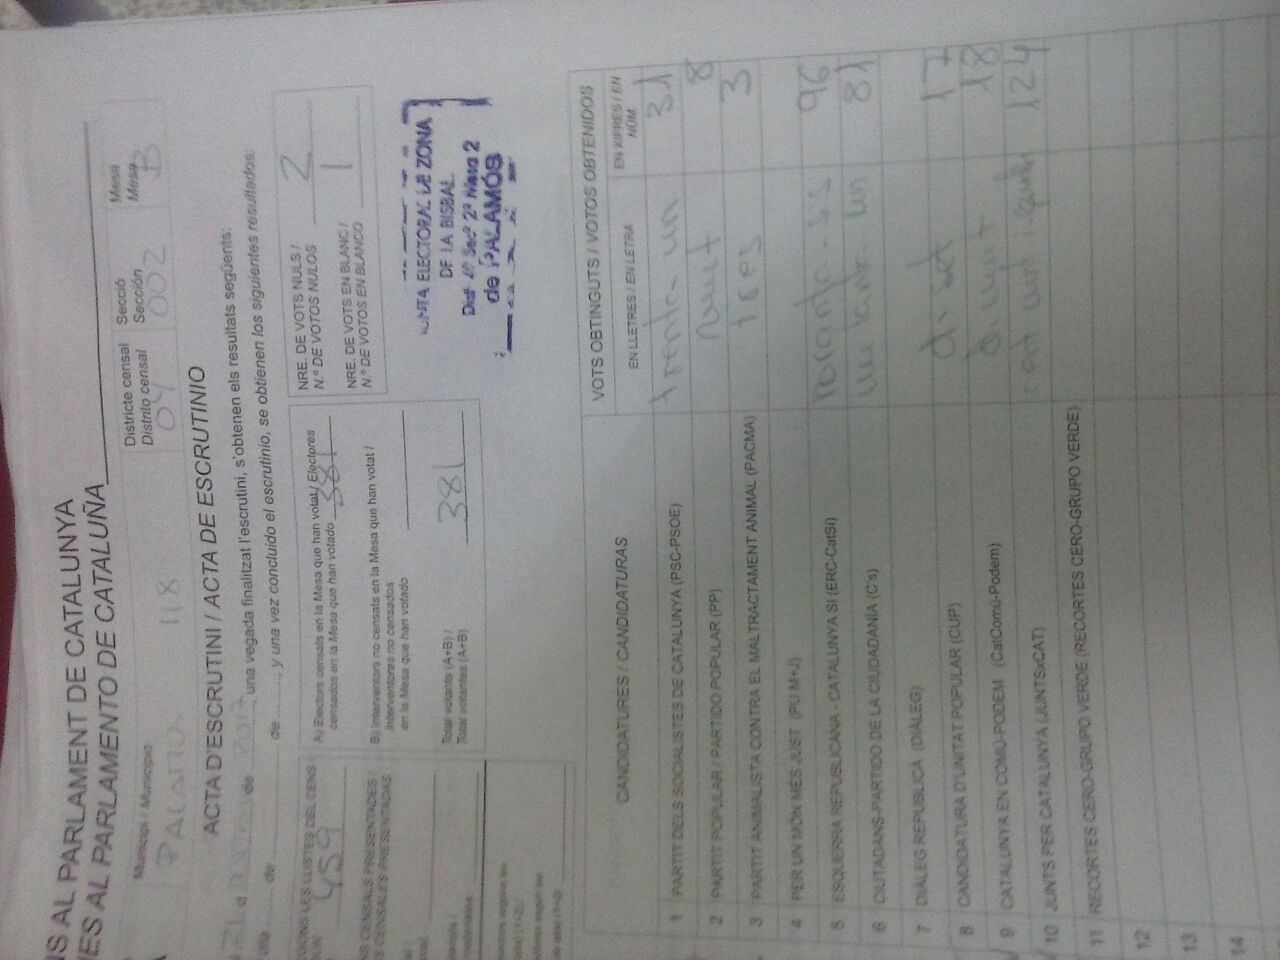 NS AL PARLAMENT DE CATALUNYA
ES AL PARLAMENTO DE CATALUÑA
Municipi / Municipio
PALAMOS 118
Districte censal
Distrito censal
04
Secció
Sección
002
Mesa
Mesa
B
ACTA D'ESCRUTINI / ACTA DE ESCRUTINIO
21 d de 2017, una vegada finalitzat l'escrutini, s'obtenen els resultats següents:
de de , y una vez concluido el escrutinio, se obtienen los siguientes resultados:
LES LLISTES DEL CENS
459
A) Electors censats en la Mesa que han votat / Electores
censados en la Mesa que han votado 381
B) Interventors no censats en la Mesa que han votat /
Interventores no censados
en la Mesa que han votado
Total votants (A+B) /
Total votantes (A+B)
381
NRE. DE VOTS NULS /
N.º DE VOTOS NULOS 2
NRE. DE VOTS EN BLANC /
N.º DE VOTOS EN BLANCO 1
CENSALS PRESENTADES /
CENSALES PRESENTADAS
JUNTA ELECTORAL DE ZONA
DE LA BISBAL
Mesa 2
de PALAMÓS
CANDIDATURES / CANDIDATURAS
VOTS OBTINGUTS / VOTOS OBTENIDOS
EN LLETRES / EN LETRA
EN XIFRES / EN NÚM.
1 PARTIT DELS SOCIALISTES DE CATALUNYA (PSC-PSOE) trenta-un 31
2 PARTIT POPULAR / PARTIDO POPULAR (PP) vuit 8
3 PARTIT ANIMALISTA CONTRA EL MALTRACTAMENT ANIMAL (PACMA) tres 3
4 PER UN MÓN MÉS JUST (PU M+J)
5 ESQUERRA REPUBLICANA - CATALUNYA SÍ (ERC-CatSí) noranta-sis 96
6 CIUTADANS-PARTIDO DE LA CIUDADANÍA (C's) vuitanta un 81
7 DIÀLEG REPUBLICÀ (DIÀLEG)
8 CANDIDATURA D'UNITAT POPULAR (CUP) di set 17
9 CATALUNYA EN COMÚ-PODEM (CatComú-Podem) divuit 18
10 JUNTS PER CATALUNYA (JUNTSxCAT) 124
11 RECORTES CERO-GRUPO VERDE (RECORTES CERO-GRUPO VERDE)
12
13
14